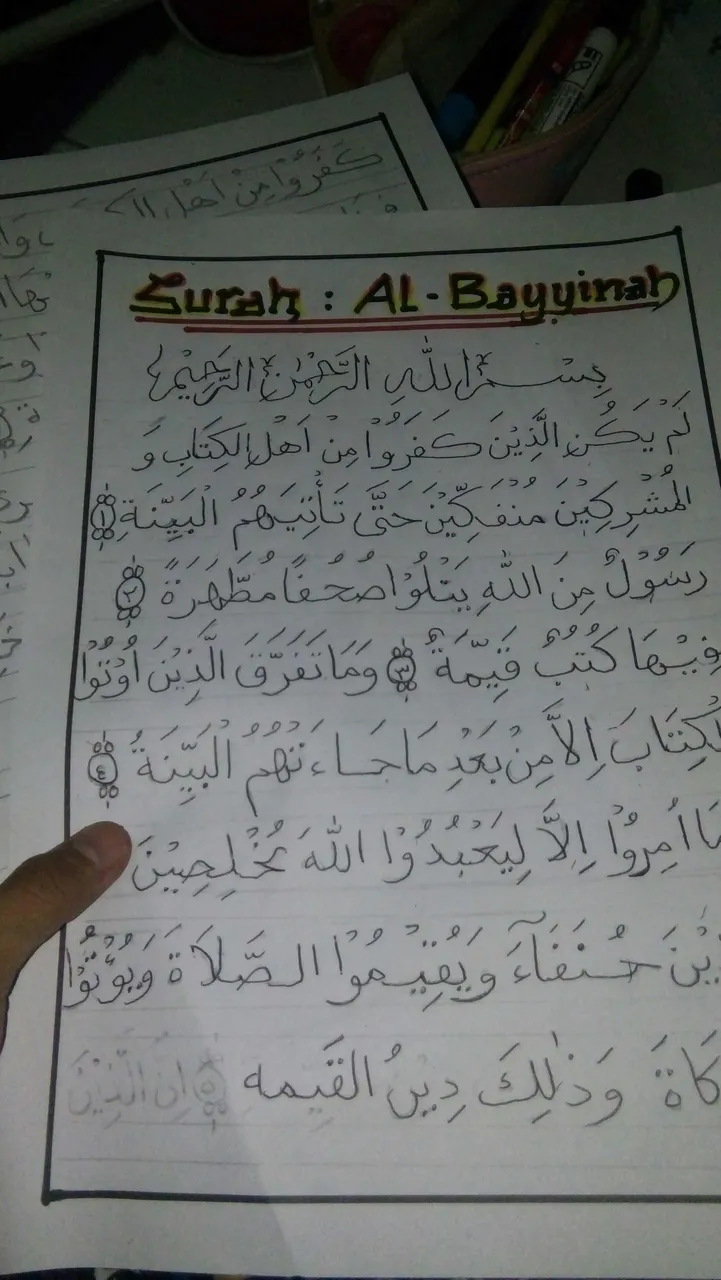 Surah : AL-Bayyinah
بِسْمِ اللّٰهِ الرَّحْمٰنِ الرَّحِيْمِ
لَمْ يَكُنِ الَّذِيْنَ كَفَرُوْا مِنْ اَهْلِ الكِتَابِ وَ
المُشْرِكِيْنَ مُنْفَكِّيْنَ حَتَّى تَأْتِيَهُمُ الْبَيِّنَةِ ١
رَسُوْلٌ مِنَ اللّٰهِ يَتْلُوْا صُحُفًا مُطَهَّرَةً ٢
فِيْهَا كُتُبٌ قَيِّمَةٌ ٣ وَمَا تَفَرَّقَ الَّذِيْنَ اُوْتُوْا
الْكِتَابَ اِلاَّ مِنْ بَعْدِ مَا جَاءَتْهُمُ الْبَيِّنَةُ ٤
اُمِرُوْا اِلاَّ لِيَعْبُدُوْا اللّٰهَ مُخْلِصِيْنَ
حُنَفَآءَ وَيُقِيْمُوْا الصَّلاَةَ وَيُؤْتُوْا
كَاةَ وَذٰلِكَ دِيْنُ القَيِّمه ٥ اِنَّ الَّذِيْنَ
كَفَرُوْا مِنْ اَهْلِ